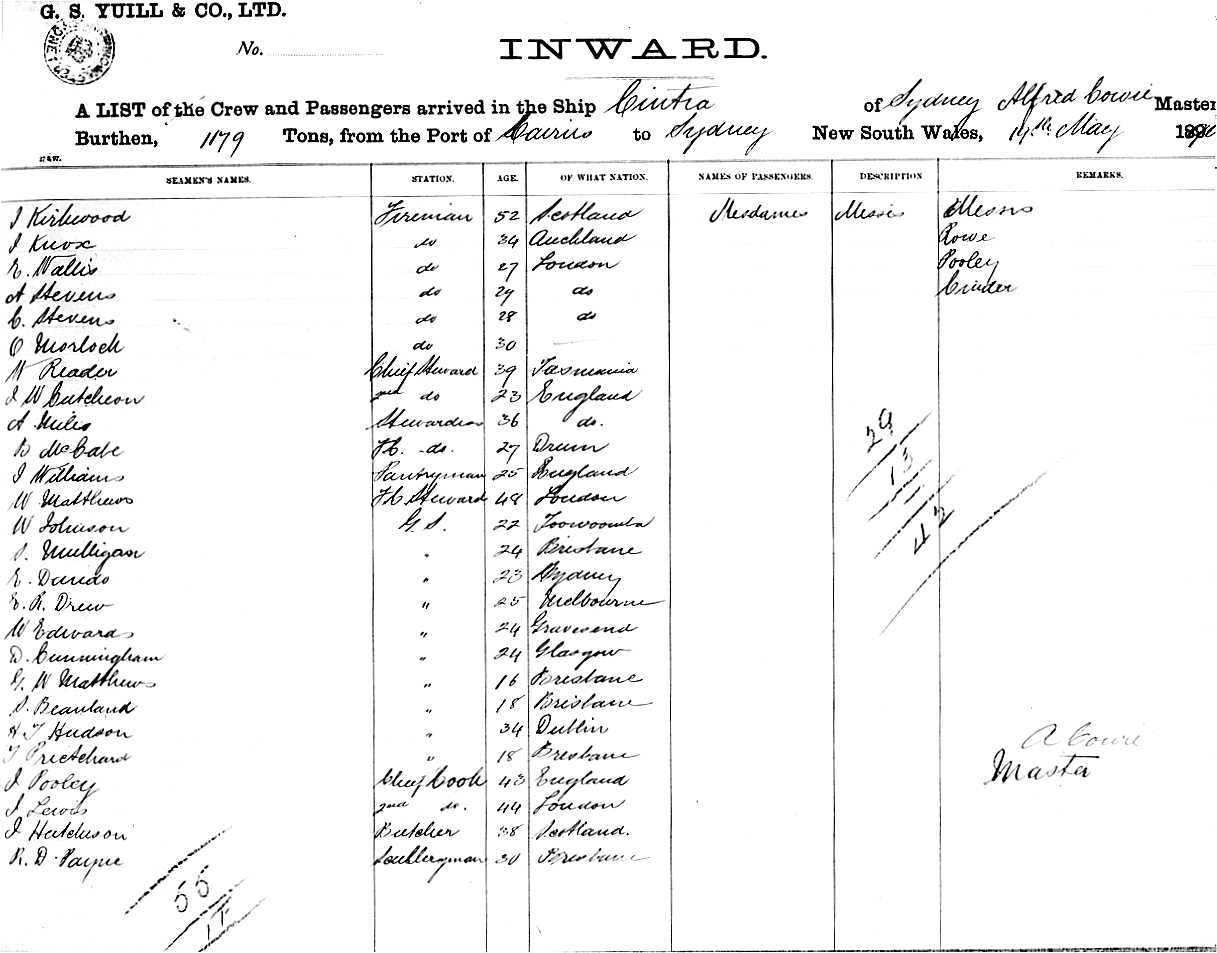 G. S. YUILL & CO., LTD.
No. INWARD.
A LIST of the Crew and Passengers arrived in the Ship Cintra of Sydney Alfred Cowie Master
Burthen, 1179 Tons, from the Port of Cairns to Sydney New South Wales, 19th May 189
SEAMEN'S NAMES. STATION. AGE. OF WHAT NATION. NAMES OF PASSENGERS. DESCRIPTION REMARKS.
J Kirkwood Fireman 52 Scotland Mesdames Messrs Messrs
J Knox do 34 Auckland Rowe
E. Wallis do 27 London Pooley
A Stevens do 29 do Cinder
C. Stevens do 28 do
O Morlock do 30
W Reader Chief Steward 39 Tasmania
J W Cutcheon 2nd do 23 England
A Miles Stewardess 36 do.
B McCabe F.C. do. 27 Drum
J Williams Pantryman 25 England
W Matthews F C Steward 48 London
W Johnson G. S. 22 Toowoomba
S. Mulligan " 24 Brisbane
E. Dando " 23 Sydney
E. R. Drew " 25 Melbourne
W Edwards " 24 Gravesend
D. Cunningham " 24 Glasgow
G. W Matthews " 16 Brisbane
S. Beanland " 18 Brisbane
H T Hudson " 34 Dublin
T Pritchard " 18 Brisbane
J Pooley Chief Cook 43 England
J Lewis 2nd do. 44 London
J Hutchison Butcher 38 Scotland.
R. D. Payne Sculleryman 30 Brisbane
29
13
42
A Cowie
Master
55
17